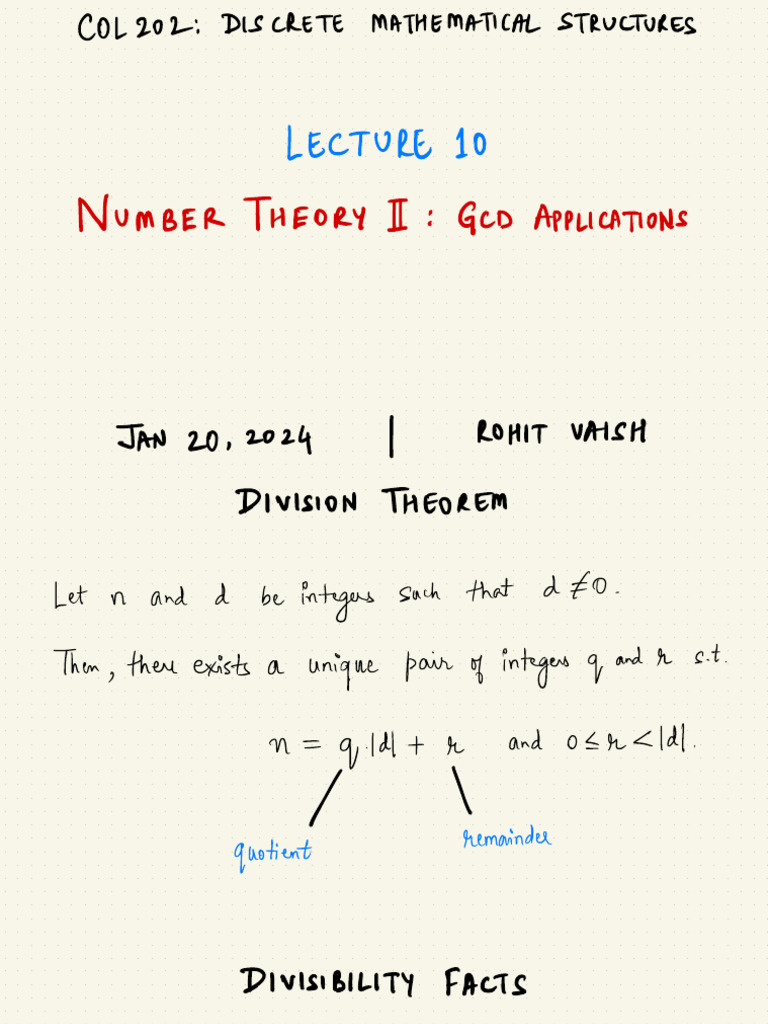 COL 202: DISCRETE MATHEMATICAL STRUCTURES
LECTURE 10
NUMBER THEORY II : GCD APPLICATIONS
JAN 20, 2024 | ROHIT VAISH
DIVISION THEOREM
Let n and d be integers such that d ≠ 0.
Then, there exists a unique pair of integers q and r s.t.
n = q.|d| + r and 0 ≤ r < |d|.
quotient remainder
DIVISIBILITY FACTS